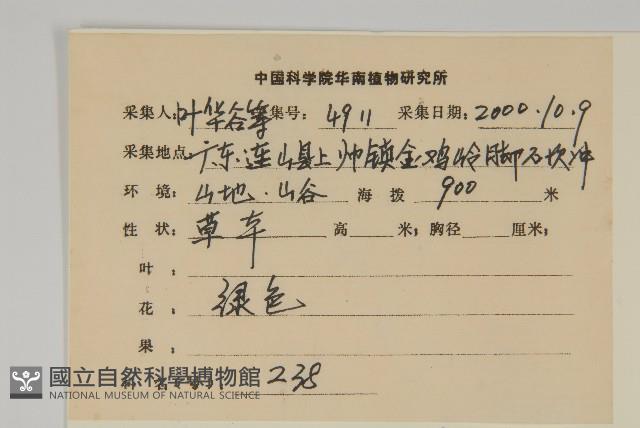 中国科学院华南植物研究所
采集人: 叶华谷等 集号: 4911 采集日期: 2000.10.9
采集地点: 广东.连山县上帅镇金鸡岭脚石坎冲
环 境: 山地.山谷 海 拨 900 米
性 状: 草本 高 米; 胸径 厘米;
叶:
花: 绿色
果:
名 238
國立自然科學博物館
NATIONAL MUSEUM OF NATURAL SCIENCE